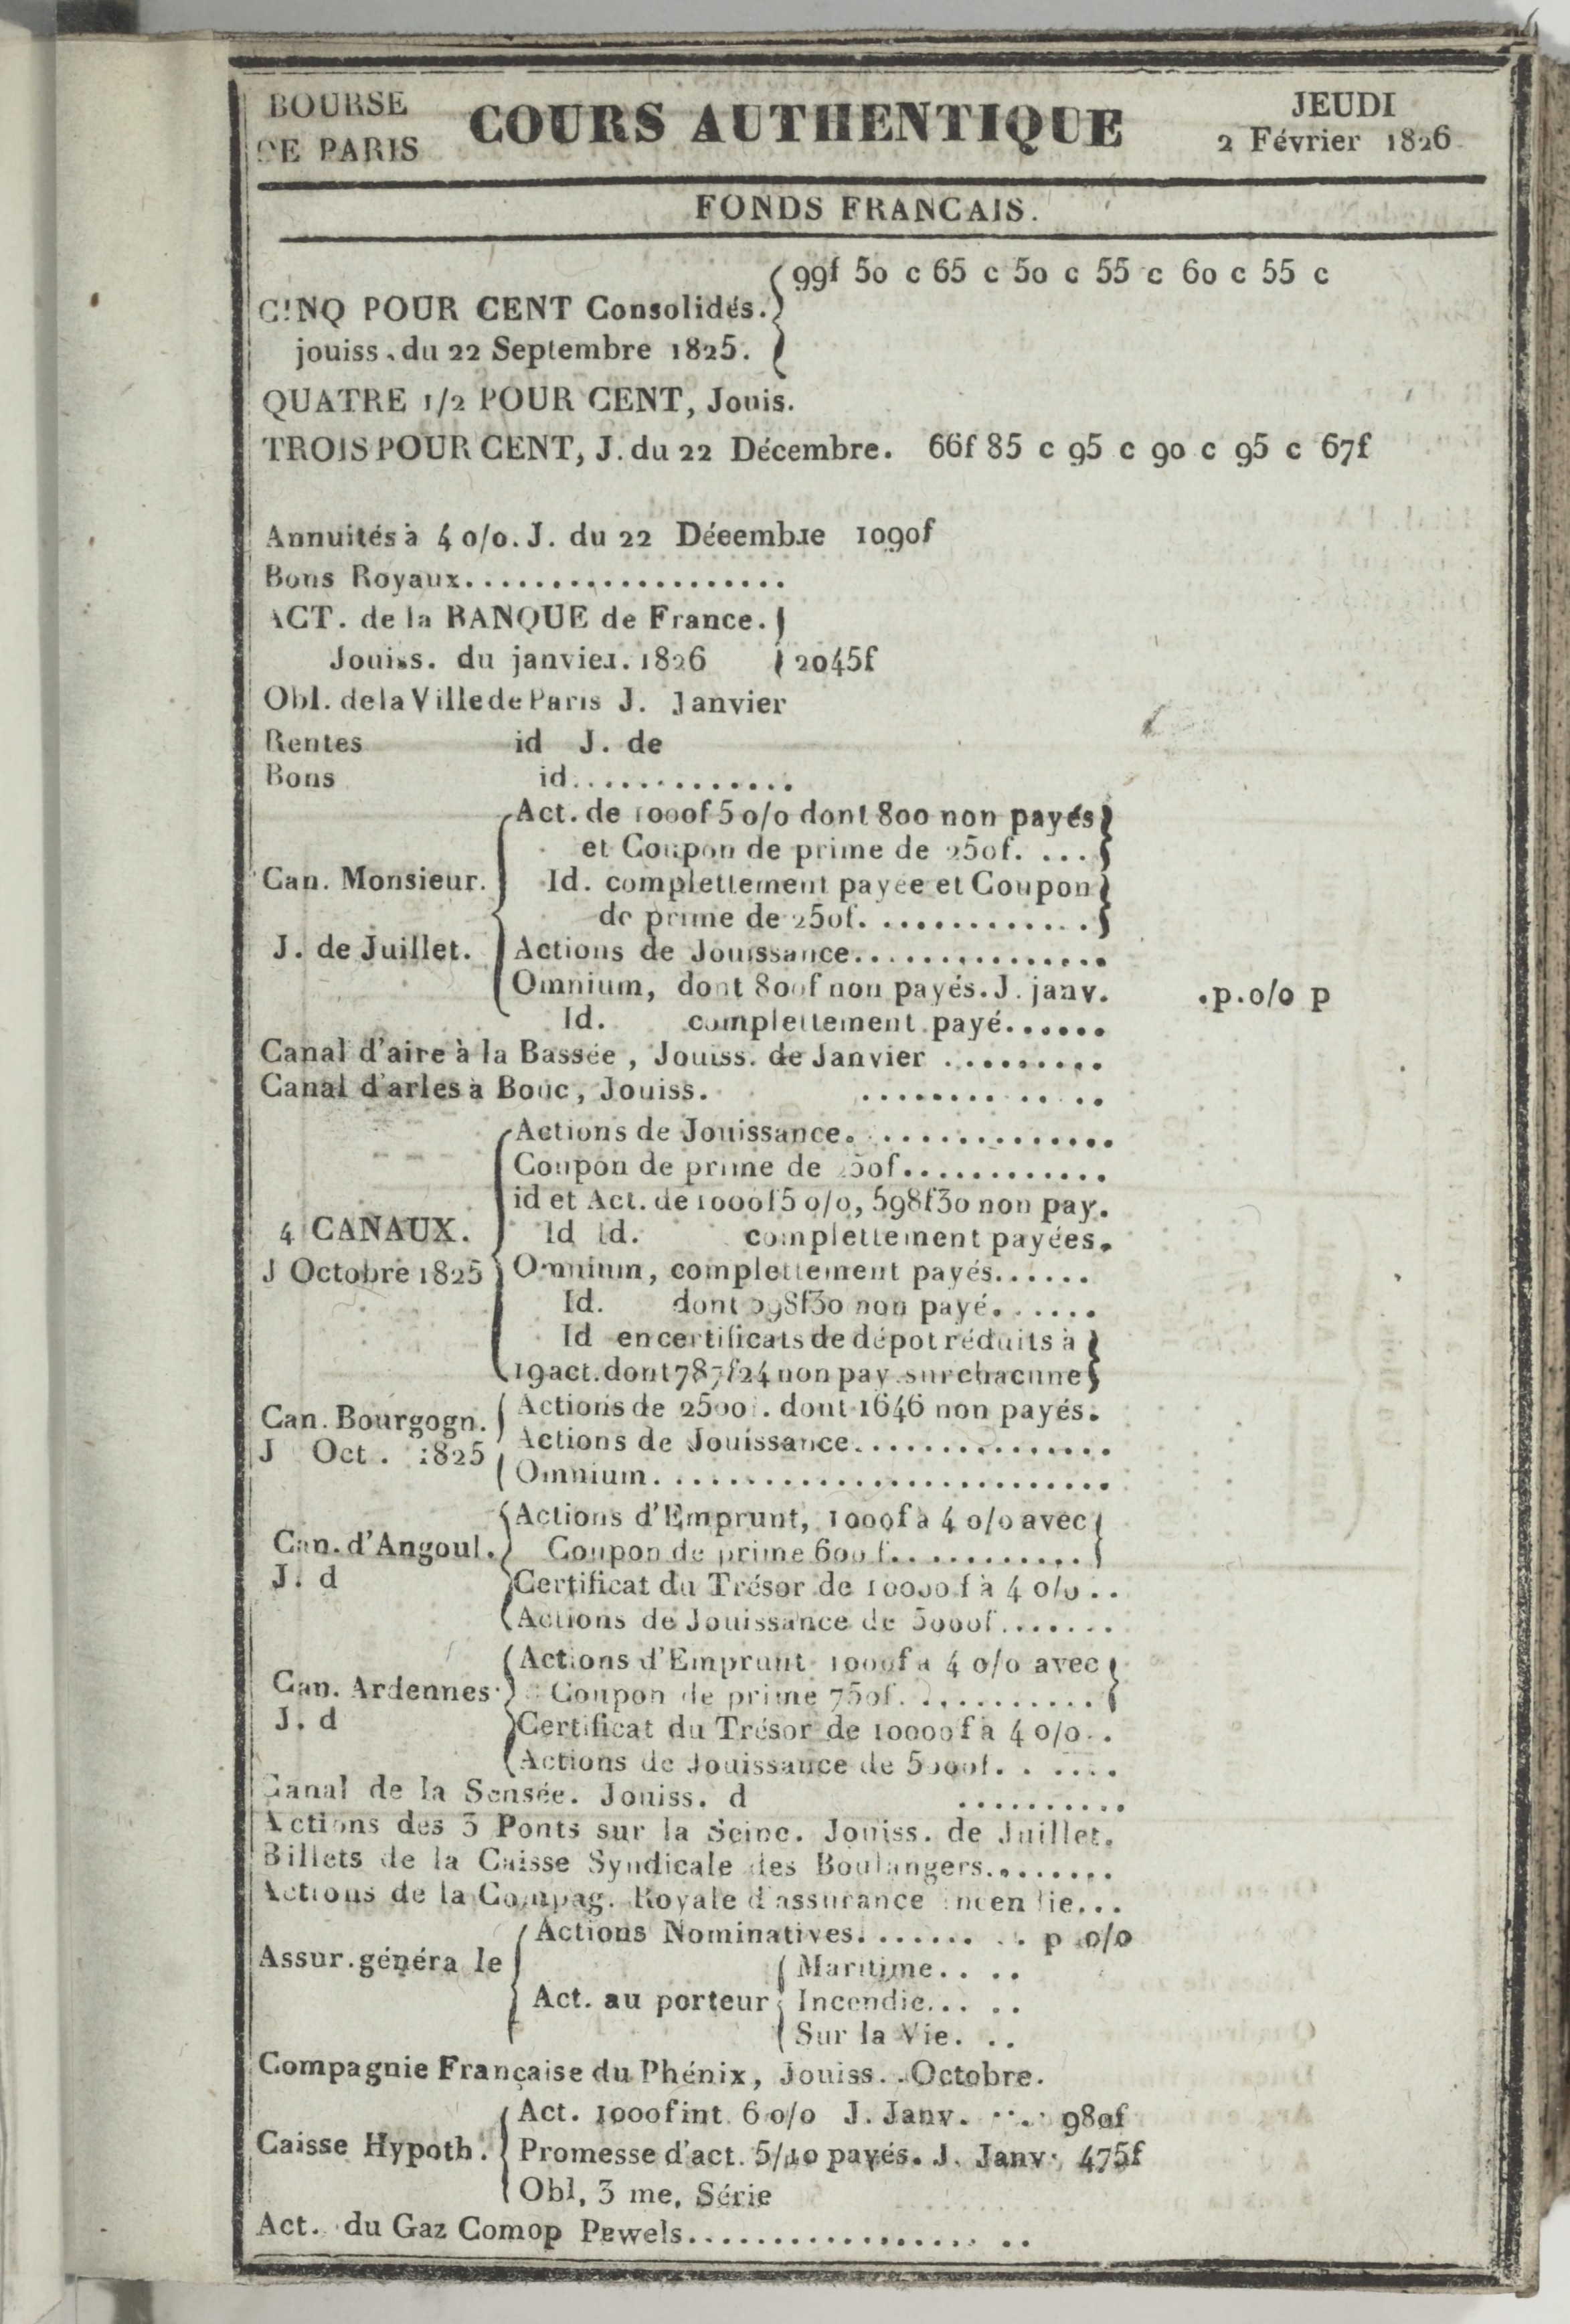 BOURSE
DE PARIS
COURS AUTHENTIQUE
JEUDI
2 Février 1826
FONDS FRANCAIS.
99f 50 c 65 c 50 c 55 c 60 c 55 c
CINQ POUR CENT Consolidés.
jouiss. du 22 Septembre 1825.
QUATRE 1/2 POUR CENT, Jouis.
TROIS POUR CENT, J. du 22 Décembre. 66f 85 c 95 c 90 c 95 c 67f
Annuités à 4 o/o. J. du 22 Déeembre 1090f
Bons Royaux...................
ACT. de la BANQUE de France.
Jouiss. du janvier. 1826 2045f
Obl. de la Ville de Paris J. Janvier
Rentes id J. de
Bons id.............
Act. de 1000f 5 o/o dont 800 non payés
et Coupon de prime de 250f. ...
Can. Monsieur. Id. complettement payée et Coupon
de prime de 250f. .............
J. de Juillet. Actions de Jouissance...............
Omnium, dont 800f non payés. J. janv. .p.o/o p
Id. complettement payé......
Canal d'aire à la Bassée, Jouiss. de Janvier .........
Canal d'arles à Bouc, Jouiss. ............
Actions de Jouissance..............
Coupon de prime de 250f............
id et Act. de 1000f 5 o/o, 598f30 non pay.
4 CANAUX. Id Id. complettement payées.
J Octobre 1825 Omnium, complettement payés......
Id. dont 598f30 non payé......
Id en certificats de dépot réduits à
19 act. dont 787f24 non pay. sur chacune
Can. Bourgogn. Actions de 2500f. dont 1646 non payés.
J Oct. 1825 Actions de Jouissance...............
Omnium.........................
Actions d'Emprunt, 1000f à 4 o/o avec
Can. d'Angoul. Coupon de prime 600 f............
J. d Certificat du Trésor de 10000 f à 4 o/o ..
Actions de Jouissance de 5000f.......
Actions d'Emprunt 1000f à 4 o/o avec
Can. Ardennes. Coupon de prime 750f. ..........
J. d Certificat du Trésor de 10000f à 4 o/o..
Actions de Jouissance de 5000f. . ....
Canal de la Sensée. Jouiss. d ..........
Actions des 3 Ponts sur la Seine. Jouiss. de Juillet.
Billets de la Caisse Syndicale des Boulangers........
Actions de la Compag. Royale d'assurance incendie...
Actions Nominatives....... .. p o/o
Assur. généra le Maritime.. ..
Act. au porteur Incendie... ..
Sur la Vie. ..
Compagnie Française du Phénix, Jouiss. .Octobre.
Act. 1000f int. 6 o/o J. Janv. ... 980f
Caisse Hypoth. Promesse d'act. 5/10 payés. J. Janv. 475f
Obl, 3 me. Série
Act. du Gaz Comop Pewels................. ..